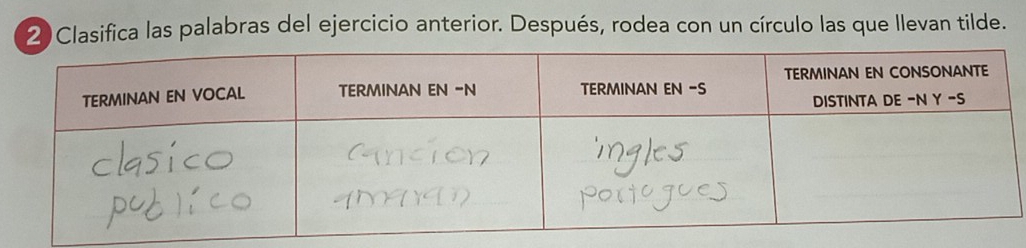 2 Clasifica las palabras del ejercicio anterior. Después, rodea con un círculo las que llevan tilde.
TERMINAN EN VOCAL
TERMINAN EN -N
TERMINAN EN -S
TERMINAN EN CONSONANTE
DISTINTA DE -N Y -S
clasico
cancion
ingles
publico
amaran
portugues